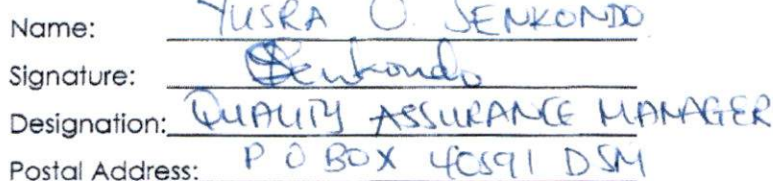 Name: YUSRA O. SENKONDO
Signature: Senkondo
Designation: QUALITY ASSURANCE MANAGER
Postal Address: P O BOX 40591 DSM